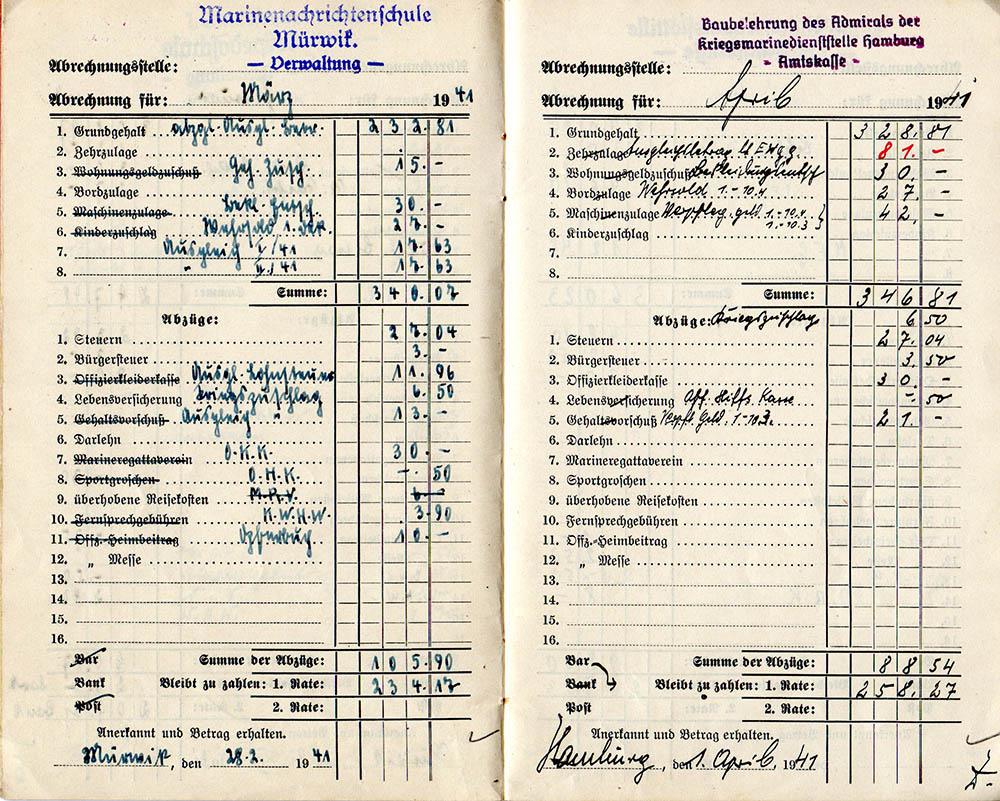 Marinenachrichtenschule
Mürwik.
— Verwaltung —
Abrechnungsstelle:
Abrechnung für: März 1941
1. Grundgehalt abzgl. Ausgl. Betr. 232.81
2. Zehrzulage
3. Wohnungsgeldzuschuß Geh. Zusch. 15.-
4. Bordzulage
5. Maschinenzulage Bekl. Zusch. 30.-
6. Kinderzuschlag Wehrsold 1. Dek. 27.-
7. Ausgleich I/41 17 63
8. " II/41 17 63
Summe: 340.07
Abzüge:
1. Steuern 27.04
2. Bürgersteuer 3.-
3. Offizierkleiderkasse Ausgl. Lohnsteuer 11.96
4. Lebensversicherung Kriegszuschlag 6.50
5. Gehaltsvorschuß Ausgleich " 13.-
6. Darlehn
7. Marineregattaverein O.K.K. 30.-
8. Sportgroschen O.H.K. -.50
9. überhobene Reisekosten M.R.V.
10. Fernsprechgebühren K.W.H.W. 3.90
11. Offz.-Heimbeitrag 10.-
12. „ Messe
13.
14.
15.
16.
Bar Summe der Abzüge: 105.90
Bank Bleibt zu zahlen: 1. Rate: 234.17
Post 2. Rate:
Anerkannt und Betrag erhalten.
Mürwik, den 28.2. 1941
Baubelehrung des Admirals der
Kriegsmarinedienststelle Hamburg
- Amtskasse -
Abrechnungsstelle:
Abrechnung für: April 1941
1. Grundgehalt 328.81
2. Zehrzulage Ausgleichsbetrag 81.-
3. Wohnungsgeldzuschuß 30.-
4. Bordzulage Wehrsold 1.-10.4 27.-
5. Maschinenzulage Verpfleg.geld 1.-10.4. 42.-
6. Kinderzuschlag 1.-10.3
7.
8.
Summe: 346 81
Abzüge: Kriegszuschlag 6 50
1. Steuern 27.04
2. Bürgersteuer 3.50
3. Offizierkleiderkasse 30.-
4. Lebensversicherung Off. Hilfs. Kasse -.50
5. Gehaltsvorschuß Verpfl. Geld. 1.-10.3. 21.-
6. Darlehn
7. Marineregattaverein
8. Sportgroschen
9. überhobene Reisekosten
10. Fernsprechgebühren
11. Offz.-Heimbeitrag
12. „ Messe
13.
14.
15.
16.
Bar Summe der Abzüge: 88 54
Bank Bleibt zu zahlen: 1. Rate: 258.27
Post 2. Rate:
Anerkannt und Betrag erhalten.
Hamburg, den 1. April, 1941